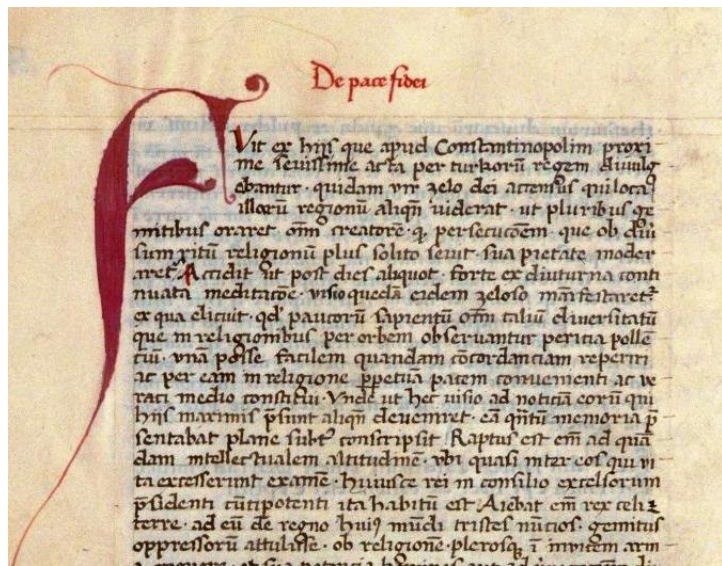 De pace fidei
FVit ex hijs que apud Constantinopolim proxi
me seuissime acta per turkorū regem diuulg
ebantur · quidam vir zelo dei accensus qui loca
illorū regionū aliqñ uiderat · ut pluribus ge
mitibus oraret om̄ creatorē · ꝙ persecucōem · que ob diũ
sum ritū religionū plus solito seuit · sua pietate moder
aret᷑ Accidit ut post dies aliquot · forte ex diuturna conti
nuata meditacōe · visio quedā eidem zeloso manifestaret᷑
ex qua elicuit · qd' paucorū sapientū om̄ taliū diuersitatū
que in religionibus per orbem obseruantur pericia polle
ciū · vnā posse facilem quandam cōcordanciam reperiri
ac per eam in religione ꝑpetuā pacem conuenienti ac ve
raci medio constitui · Vnde ut hec visio ad noticiā eorū qui
hijs maximis p̄sunt aliqñ deueniret · eā qñtū memoria p̄
sentabat plane subt᷑ conscripsit Raptus est em̄ ad quā
dam intellectualem altitudinē · vbi quasi inter eos qui vi
ta excesserunt examē · huiusce rei in consilio excelsorum
p̄sidenti cūctipotenti ita habitū est · Aiebat em̄ rex celi ⁊
terre · ad eū de regno huiꝰ mūdi tristes nūcios · gemitus
oppressorū attulisse · ob religionē · plerosqꝫ ī inuicem arm